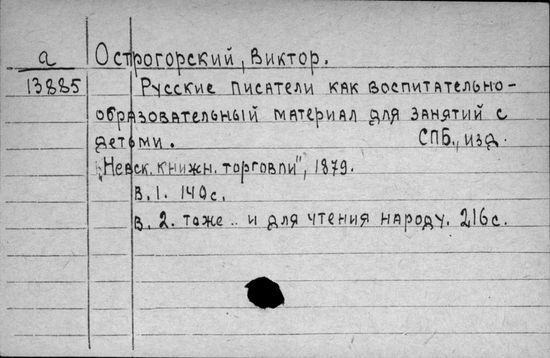 а Острогорский, Виктор.
13885 Русские писатели как воспитательно-
образовательный материал для занятий с
детьми. СПБ., изд.
"Невск. книжн. торговли", 1879.
В.1. 140с.
В.2. тоже .. и для чтения народу. 216с.